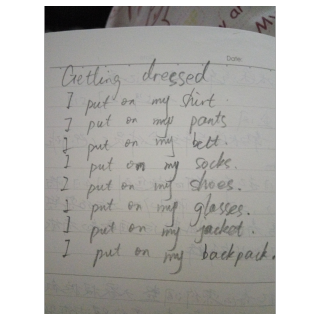 Date:
Getting dressed
I put on my shirt.
I put on my pants
I put on my belt.
I put on my socks.
I put on my shoes.
I put on my glasses.
I put on my jacket.
I put on my backpack.